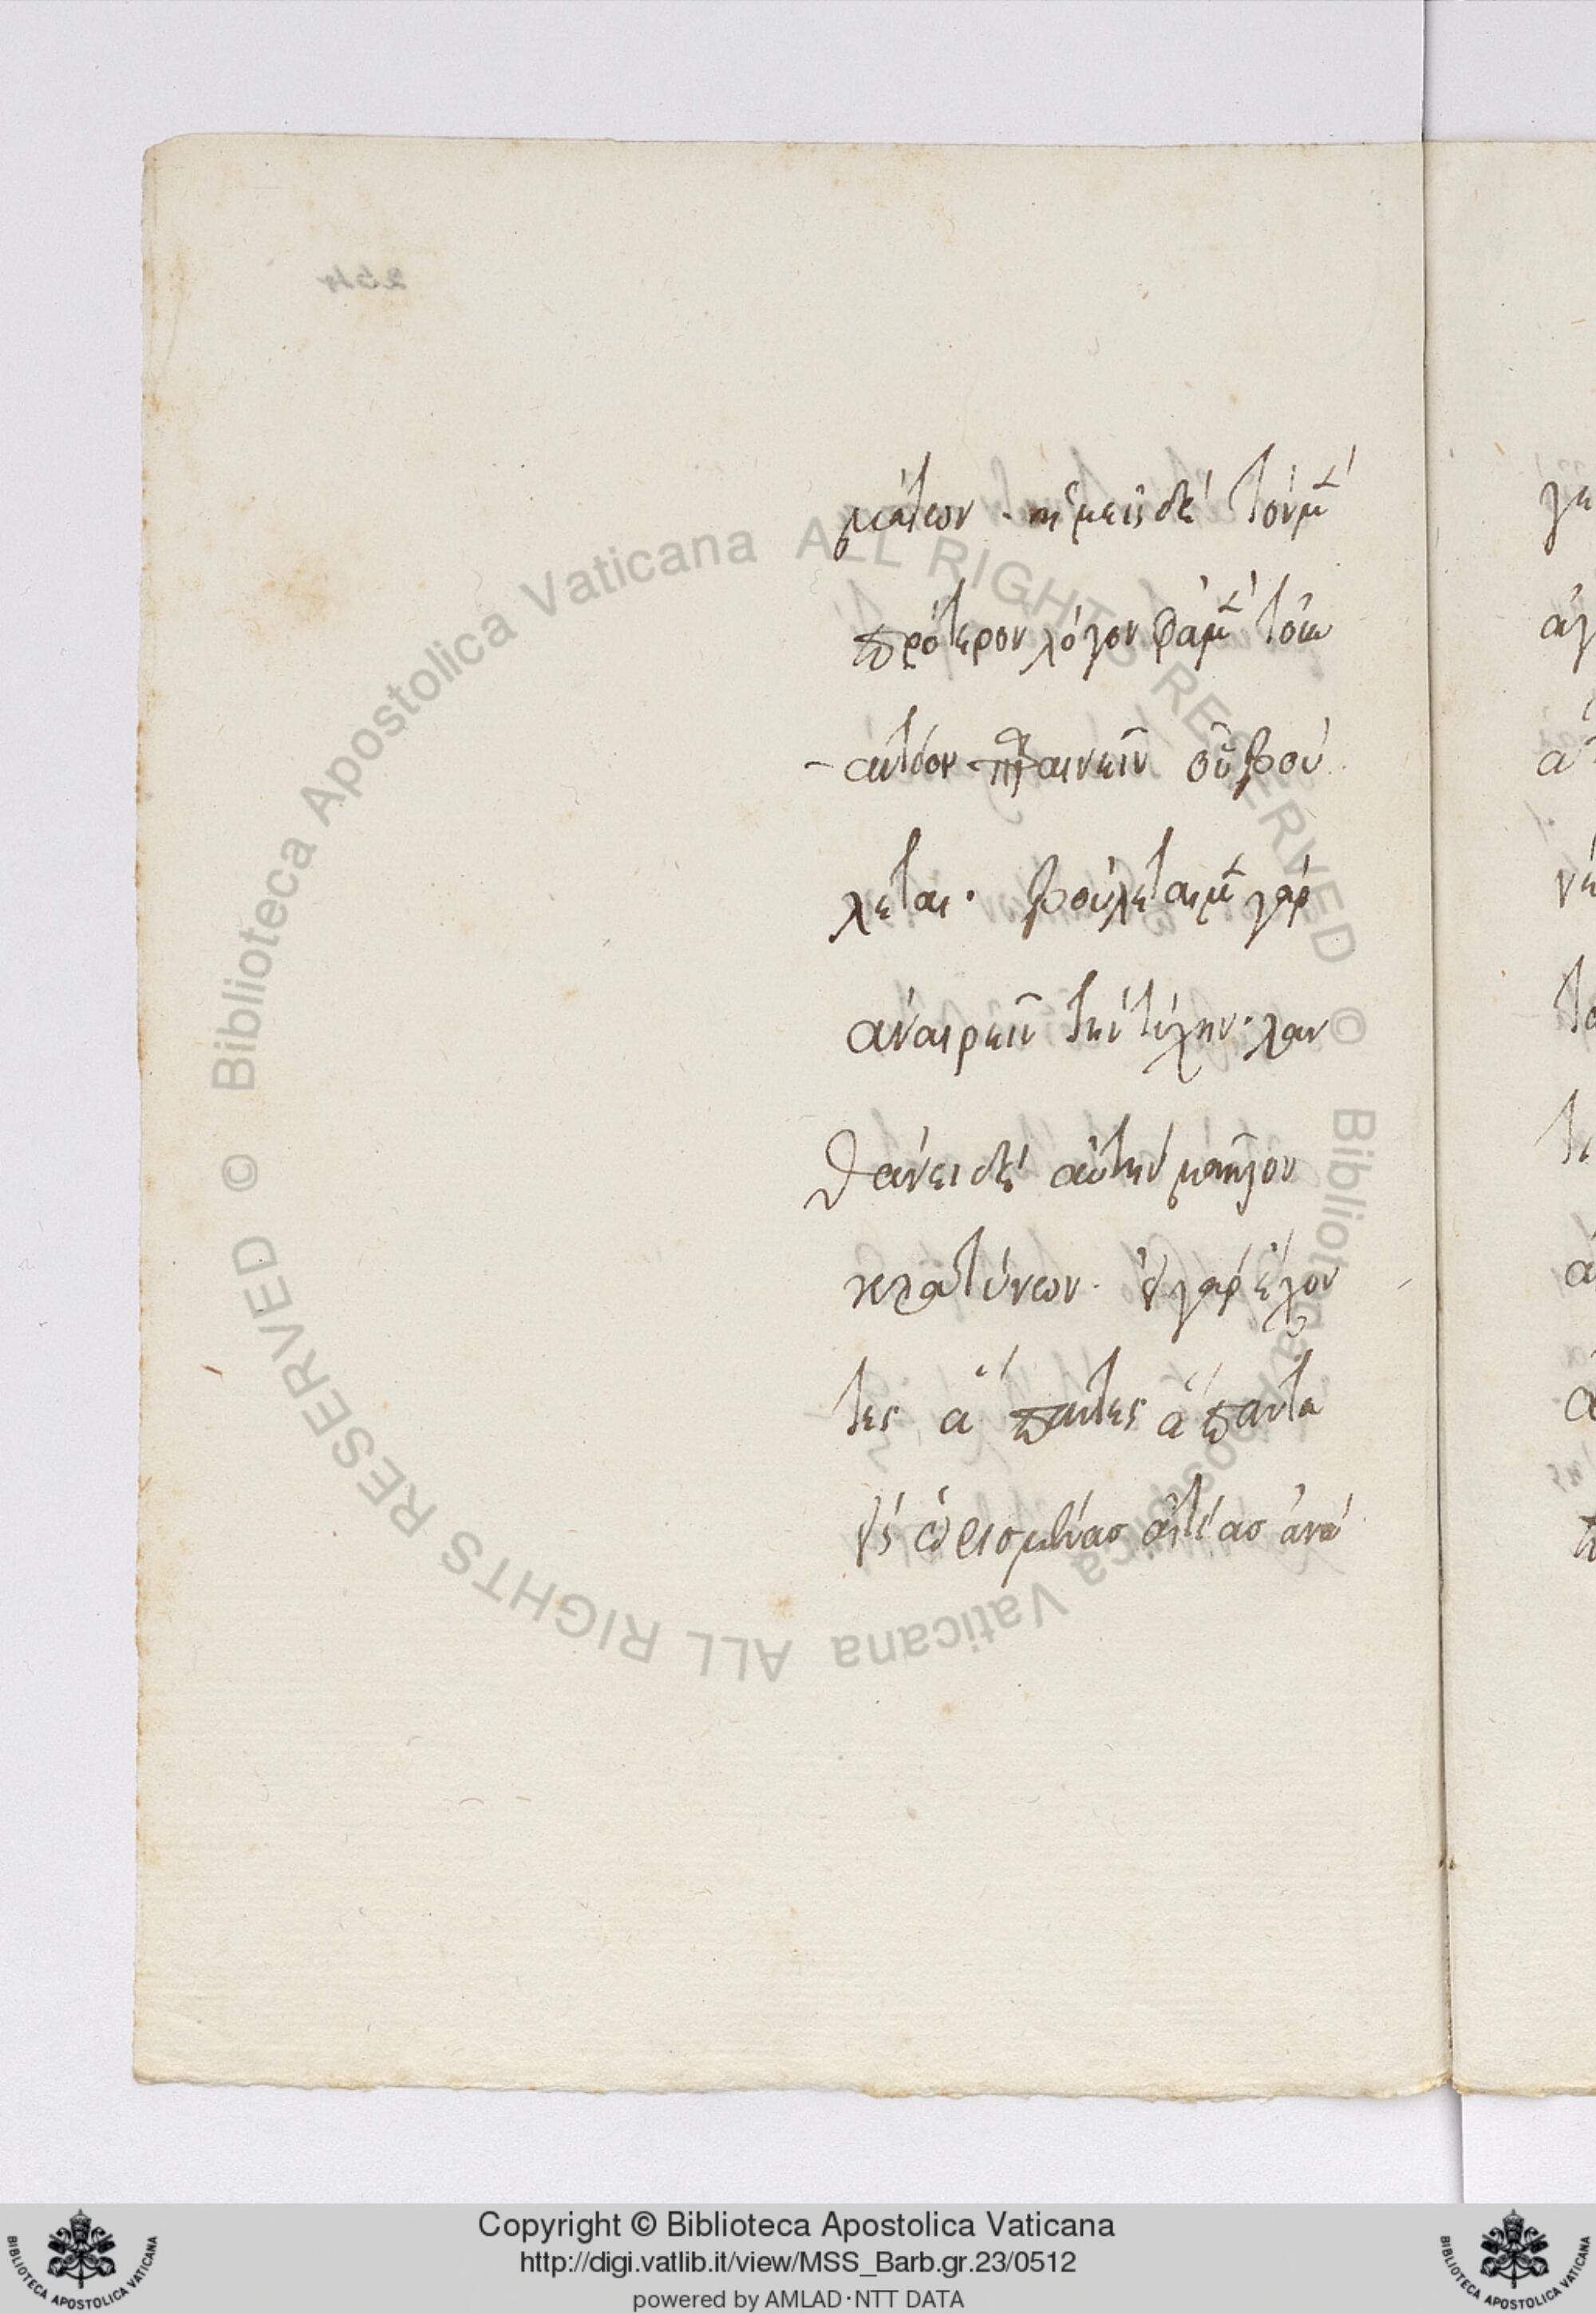 254
μάτων · ἡμεῖς δὲ τὸν μὲν
πρότερον λόγον φαμὲν
αὐτὸν ἐπαινεῖν οὗ βού
λεται · βούλεται μὲν γὰρ
ἀναιρεῖν τὴν τύχην · λαν
θάνει δὲ αὐτὴν μᾶλλον
κρατύνων · οἱ γὰρ λέγον
τες ἅπαντες ἅπαντα
ὡρισμένας αἰτίας ἀνα
© Biblioteca Apostolica Vaticana ALL RIGHTS RESERVED © Biblioteca Apostolica Vaticana ALL RIGHTS RESERVED
Copyright © Biblioteca Apostolica Vaticana
http://digi.vatlib.it/view/MSS_Barb.gr.23/0512
powered by AMLAD·NTT DATA
BIBLIOTECA APOSTOLICA VATICANA
BIBLIOTECA APOSTOLICA VATICANA